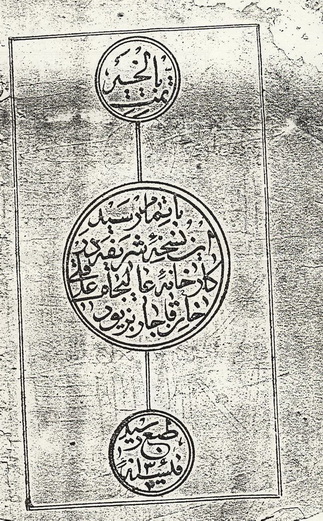 تمت
بالخیر
باتمام رسید
این نسخهٔ شریفه در
کارخانهٔ عالیجاه علی قلی
خان قاجار بزیور
طبع رسید
فی سنه